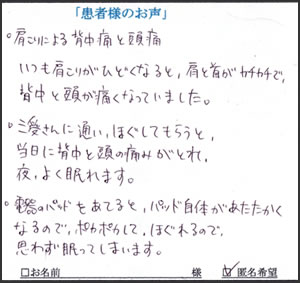 「患者様のお声」
○肩こりによる背中痛と頭痛
いつも肩こりがひどくなると、肩と首がカチカチで、
背中と頭が痛くなっていました。
○三愛さんに通い、ほぐしてもらうと、
当日に背中と頭の痛みがとれ、
夜、よく眠れます。
○電気のパッドをあてると、パッド自体があたたかく
なるので、ポカポカして、ほぐれるので、
思わず眠ってしまいます。
□お名前 様 ☑匿名希望